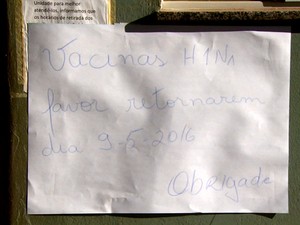 Unidade para melhor
atendê-los, informamos que
os horários de retirada dos
Vacinas H1N1
favor retornarem
dia 9-5-2016
Obrigada